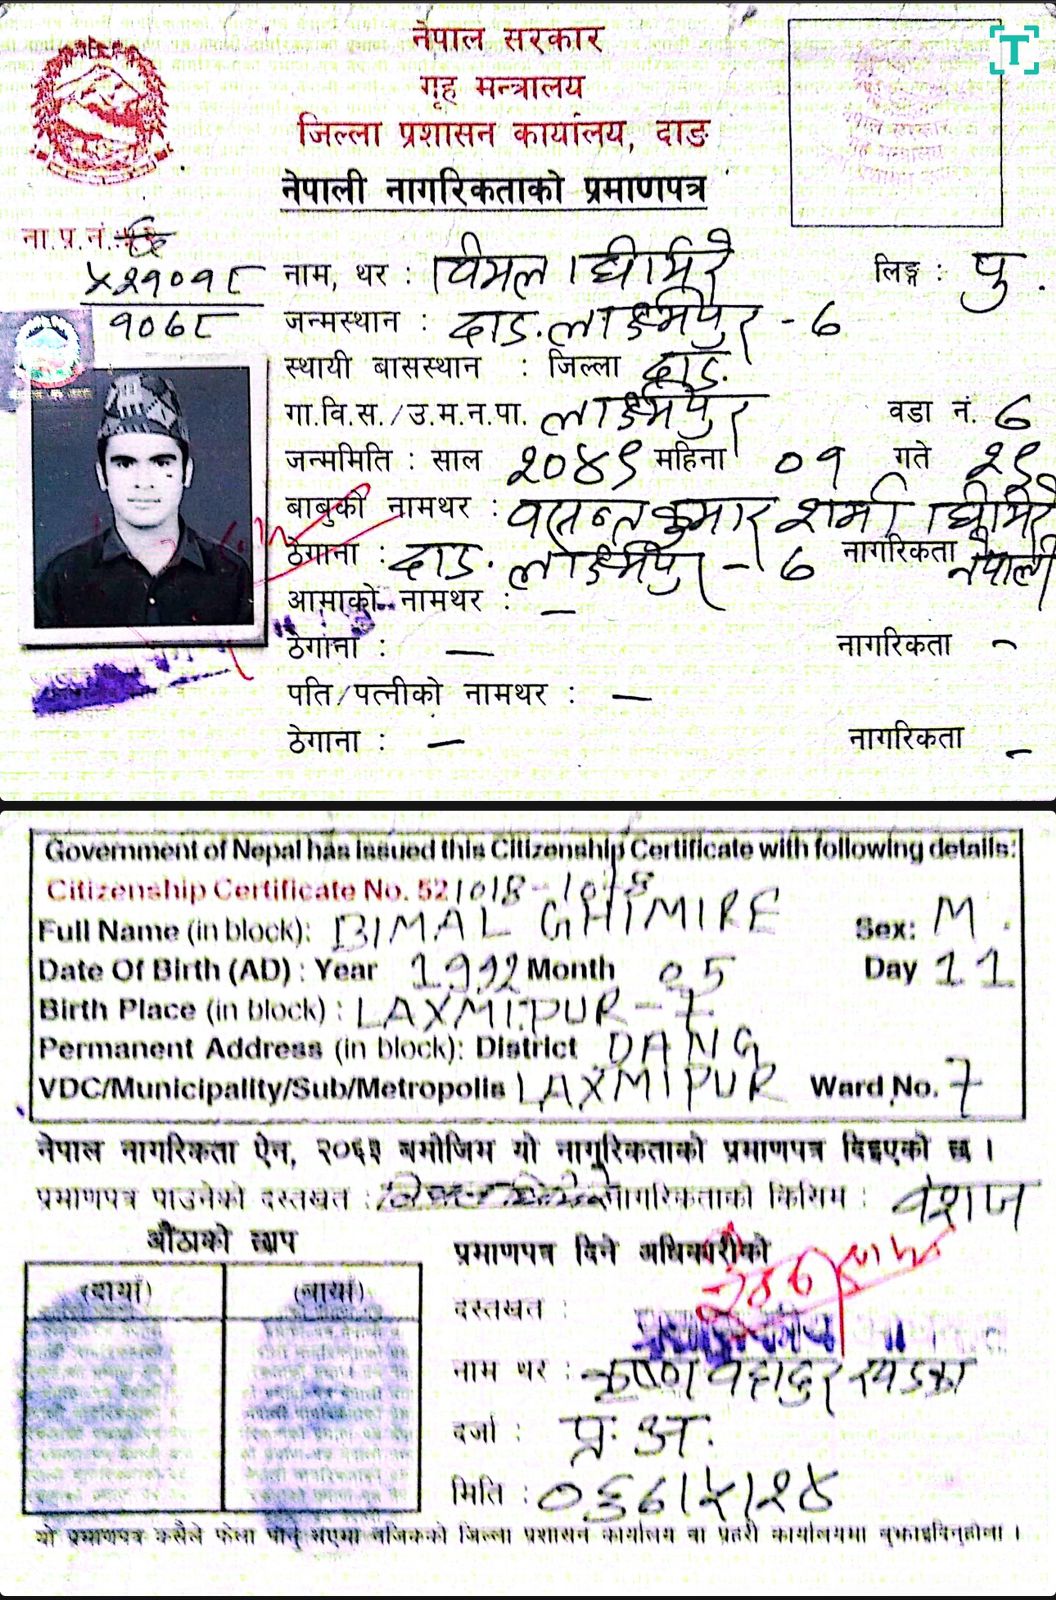 नेपाल सरकार
गृह मन्त्रालय
जिल्ला प्रशासन कार्यालय, दाङ
नेपाली नागरिकताको प्रमाणपत्र
ना.प्र.नं.
५२१०१८
१०७८
नाम, थर : विमल घिमिरे लिङ्ग : पु.
जन्मस्थान : दाङ. लक्ष्मीपुर - ७
स्थायी बासस्थान : जिल्ला दाङ.
गा.वि.स./उ.म.न.पा. लक्ष्मीपुर वडा नं. ७
जन्ममिति : साल २०४९ महिना ०१ गते २९
बाबुको नामथर : वसन्त कुमार शर्मा घिमिरे
ठेगाना : दाङ. लक्ष्मीपुर - ७ नागरिकता नेपाली
आमाको नामथर : —
ठेगाना : — नागरिकता -
पति/पत्नीको नामथर : —
ठेगाना : — नागरिकता -
Government of Nepal has issued this Citizenship Certificate with following details:
Citizenship Certificate No. 521018-1078
Full Name (in block): BIMAL GHIMIRE Sex: M.
Date Of Birth (AD) : Year 1992 Month 05 Day 11
Birth Place (in block) : LAXMIPUR - 7.
Permanent Address (in block): District DANG
VDC/Municipality/Sub/Metropolis LAXMIPUR Ward No. 7
नेपाल नागरिकता ऐन, २०६३ बमोजिम यो नागरिकताको प्रमाणपत्र दिइएको छ ।
प्रमाणपत्र पाउनेको दस्तखत : नागरिकताको किसिम : वंशज
औंठाको छाप
(दायाँ) (बायाँ)
प्रमाणपत्र दिने अधिकारीको
दस्तखत :
नाम थर : कृष्ण बहादुर खड्का
दर्जा : प्र. अ.
मिति : ०६७।५।२४
यो प्रमाणपत्र कसैले फेला पार्नु भएमा नजिकको जिल्ला प्रशासन कार्यालय वा प्रहरी कार्यालयमा बुझाइदिनुहोला ।